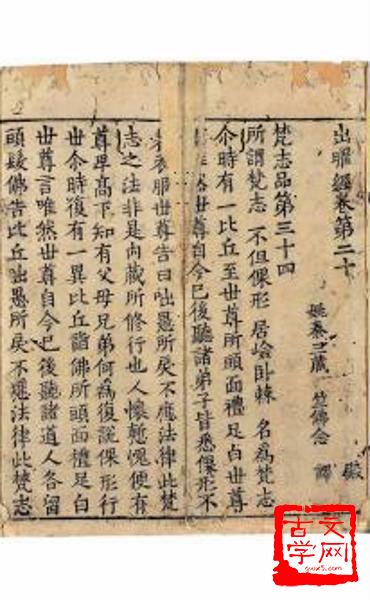 出曜經卷第二十
殿
姚秦三藏 竺佛念 譯
梵志品第三十四
所謂梵志 不但倮形 居嶮卧棘 名為梵志
尒時有一比丘至世尊所頭面禮足白世尊
世尊自今已後聽諸弟子皆悉倮形不
衣服世尊告曰咄愚所戾不應法律此梵
志之法非是向藏所修行也人懷慙愧便有
尊卑高下知有父母兄弟何為復說倮形行
世尒時復有一異比丘詣佛所頭面禮足白
世尊言唯然世尊自今已後聽諸道人各留
頭髮佛告比丘咄愚所戾不應法律此梵志
古文
学网
gwx5.com